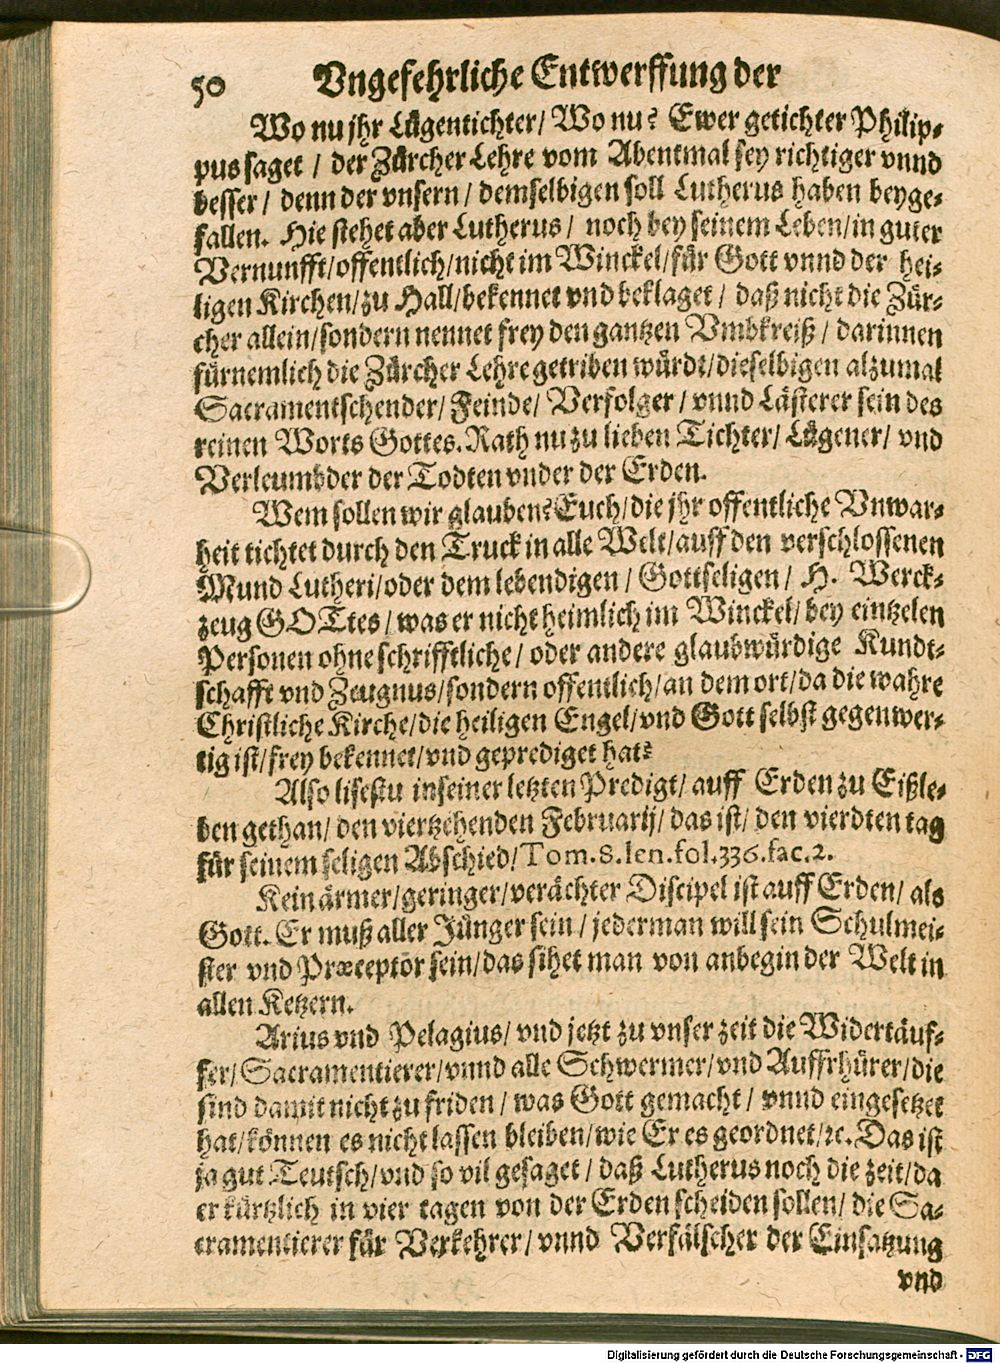 50 Vngefehrliche Entwerffung der
Wo nu jhr Lügentichter/ Wo nu? Ewer getichter Philip-
pus saget / der Zürcher Lehre vom Abentmal sey richtiger vnnd
besser / denn der vnsern / demselbigen soll Lutherus haben beyge-
fallen. Hie stehet aber Lutherus / noch bey seinem Leben/in guter
Vernunfft/offentlich/nicht im Winckel/für Gott vnnd der hei-
ligen Kirchen/zu Hall/bekennet vnd beklaget / daß nicht die Zür-
cher allein/sondern nennet frey den gantzen Vmbkreiß / darinnen
fürnemlich die Zürcher Lehre getriben würdt/dieselbigen alzumal
Sacramentschender/ Feinde/ Verfolger / vnnd Lästerer sein des
reinen Worts Gottes. Rath nu zu lieben Tichter/ Lügener/ vnd
Verleumbder der Todten vnder der Erden.
Wem sollen wir glauben? Euch/die jhr offentliche Vnwar-
heit tichtet durch den Truck in alle Welt/auff den verschlossenen
Mund Lutheri/oder dem lebendigen / Gottseligen / H. Werck-
zeug GOTtes / was er nicht heimlich im Winckel/ bey eintzelen
Personen ohne schrifftliche / oder andere glaubwürdige Kundt-
schafft vnd Zeugnus/sondern offentlich/an dem ort/da die wahre
Christliche Kirche/die heiligen Engel/vnd Gott selbst gegenwer-
tig ist/frey bekennet/vnd geprediget hat?
Also lisestu in seiner letzten Predigt/ auff Erden zu Eißle-
ben gethan/ den viertzehenden Februarij/ das ist/ den vierdten tag
für seinem seligen Abschied/Tom.8.Ien.fol.336.fac.2.
Kein ärmer/geringer/verächter Discipel ist auff Erden/ als
Gott. Er muß aller Jünger sein / jederman will sein Schulmei-
ster vnd Præceptor sein/das sihet man von anbegin der Welt in
allen Ketzern.
Arius vnd Pelagius/ vnd jetzt zu vnser zeit die Widertäuf-
fer/Sacramentierer/vnnd alle Schwermer/vnd Auffrhürer/die
sind damit nicht zu friden / was Gott gemacht / vnnd eingesetzet
hat/können es nicht lassen bleiben/wie Er es geordnet/ꝛc. Das ist
ja gut Teutsch/vnd so vil gesaget / daß Lutherus noch die zeit/da
er kürtzlich in vier tagen von der Erden scheiden sollen/ die Sa-
cramentierer für Verkehrer/ vnnd Verfälscher der Einsatzung
vnd
Digitalisierung gefördert durch die Deutsche Forschungsgemeinschaft - DFG